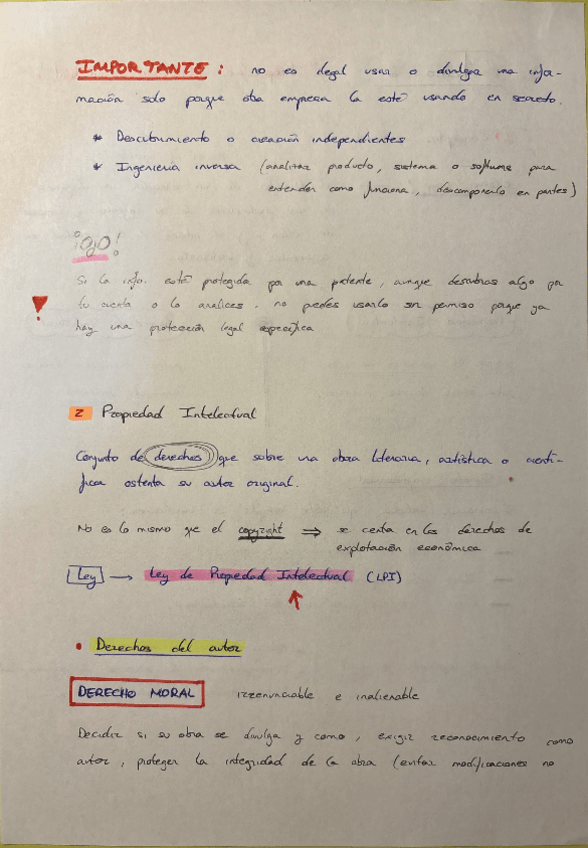 IMPORTANTE: no es ilegal usar o divulgar una infor-
mación solo porque otra empresa la esté usando en secreto.
* Descubrimiento o creación independientes
* Ingeniería inversa (analizar producto, sistema o software para
entender como funciona, descomponerlo en partes)
¡OJO!
Si la info. está protegida por una patente, aunque descubras algo por
tu cuenta o lo analices, no puedes usarlo sin permiso porque ya
hay una protección legal específica
!
2 Propiedad Intelectual
Conjunto de derechos que sobre una obra literaria, artística o cientí-
fica ostenta su autor original.
No es lo mismo que el copyright ⇒ se centra en los derechos de
explotación económica
Ley → Ley de Propiedad Intelectual (LPI)
• Derechos del autor
DERECHO MORAL irrenunciable e inalienable
Decidir si su obra se divulga y como, exigir reconocimiento como
autor, proteger la integridad de la obra (evitar modificaciones no